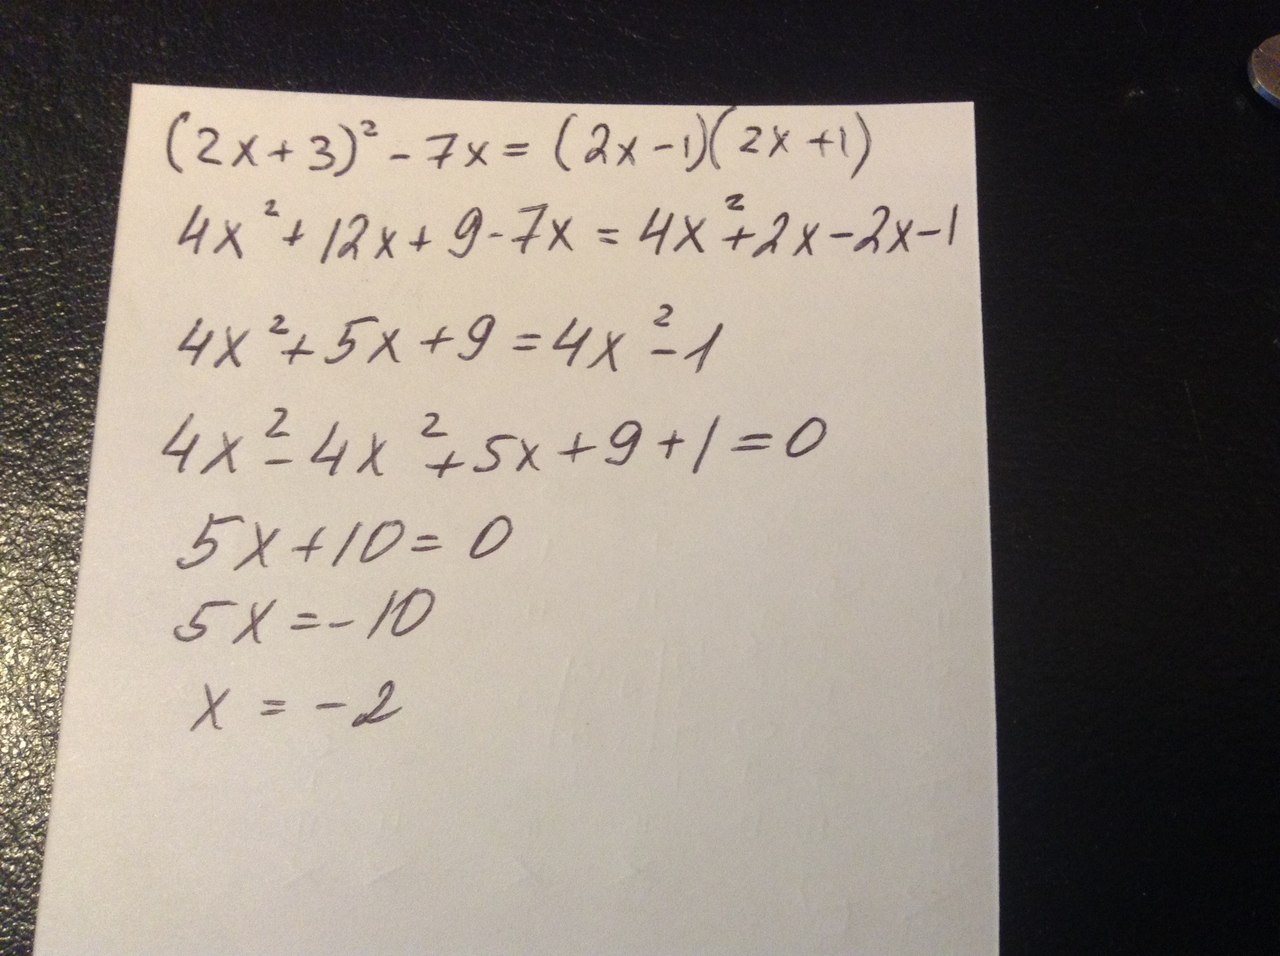 (2x+3)² - 7x = (2x-1)(2x+1)
4x² + 12x + 9 - 7x = 4x² + 2x - 2x - 1
4x² + 5x + 9 = 4x² - 1
4x² - 4x² + 5x + 9 + 1 = 0
5x + 10 = 0
5x = -10
x = -2